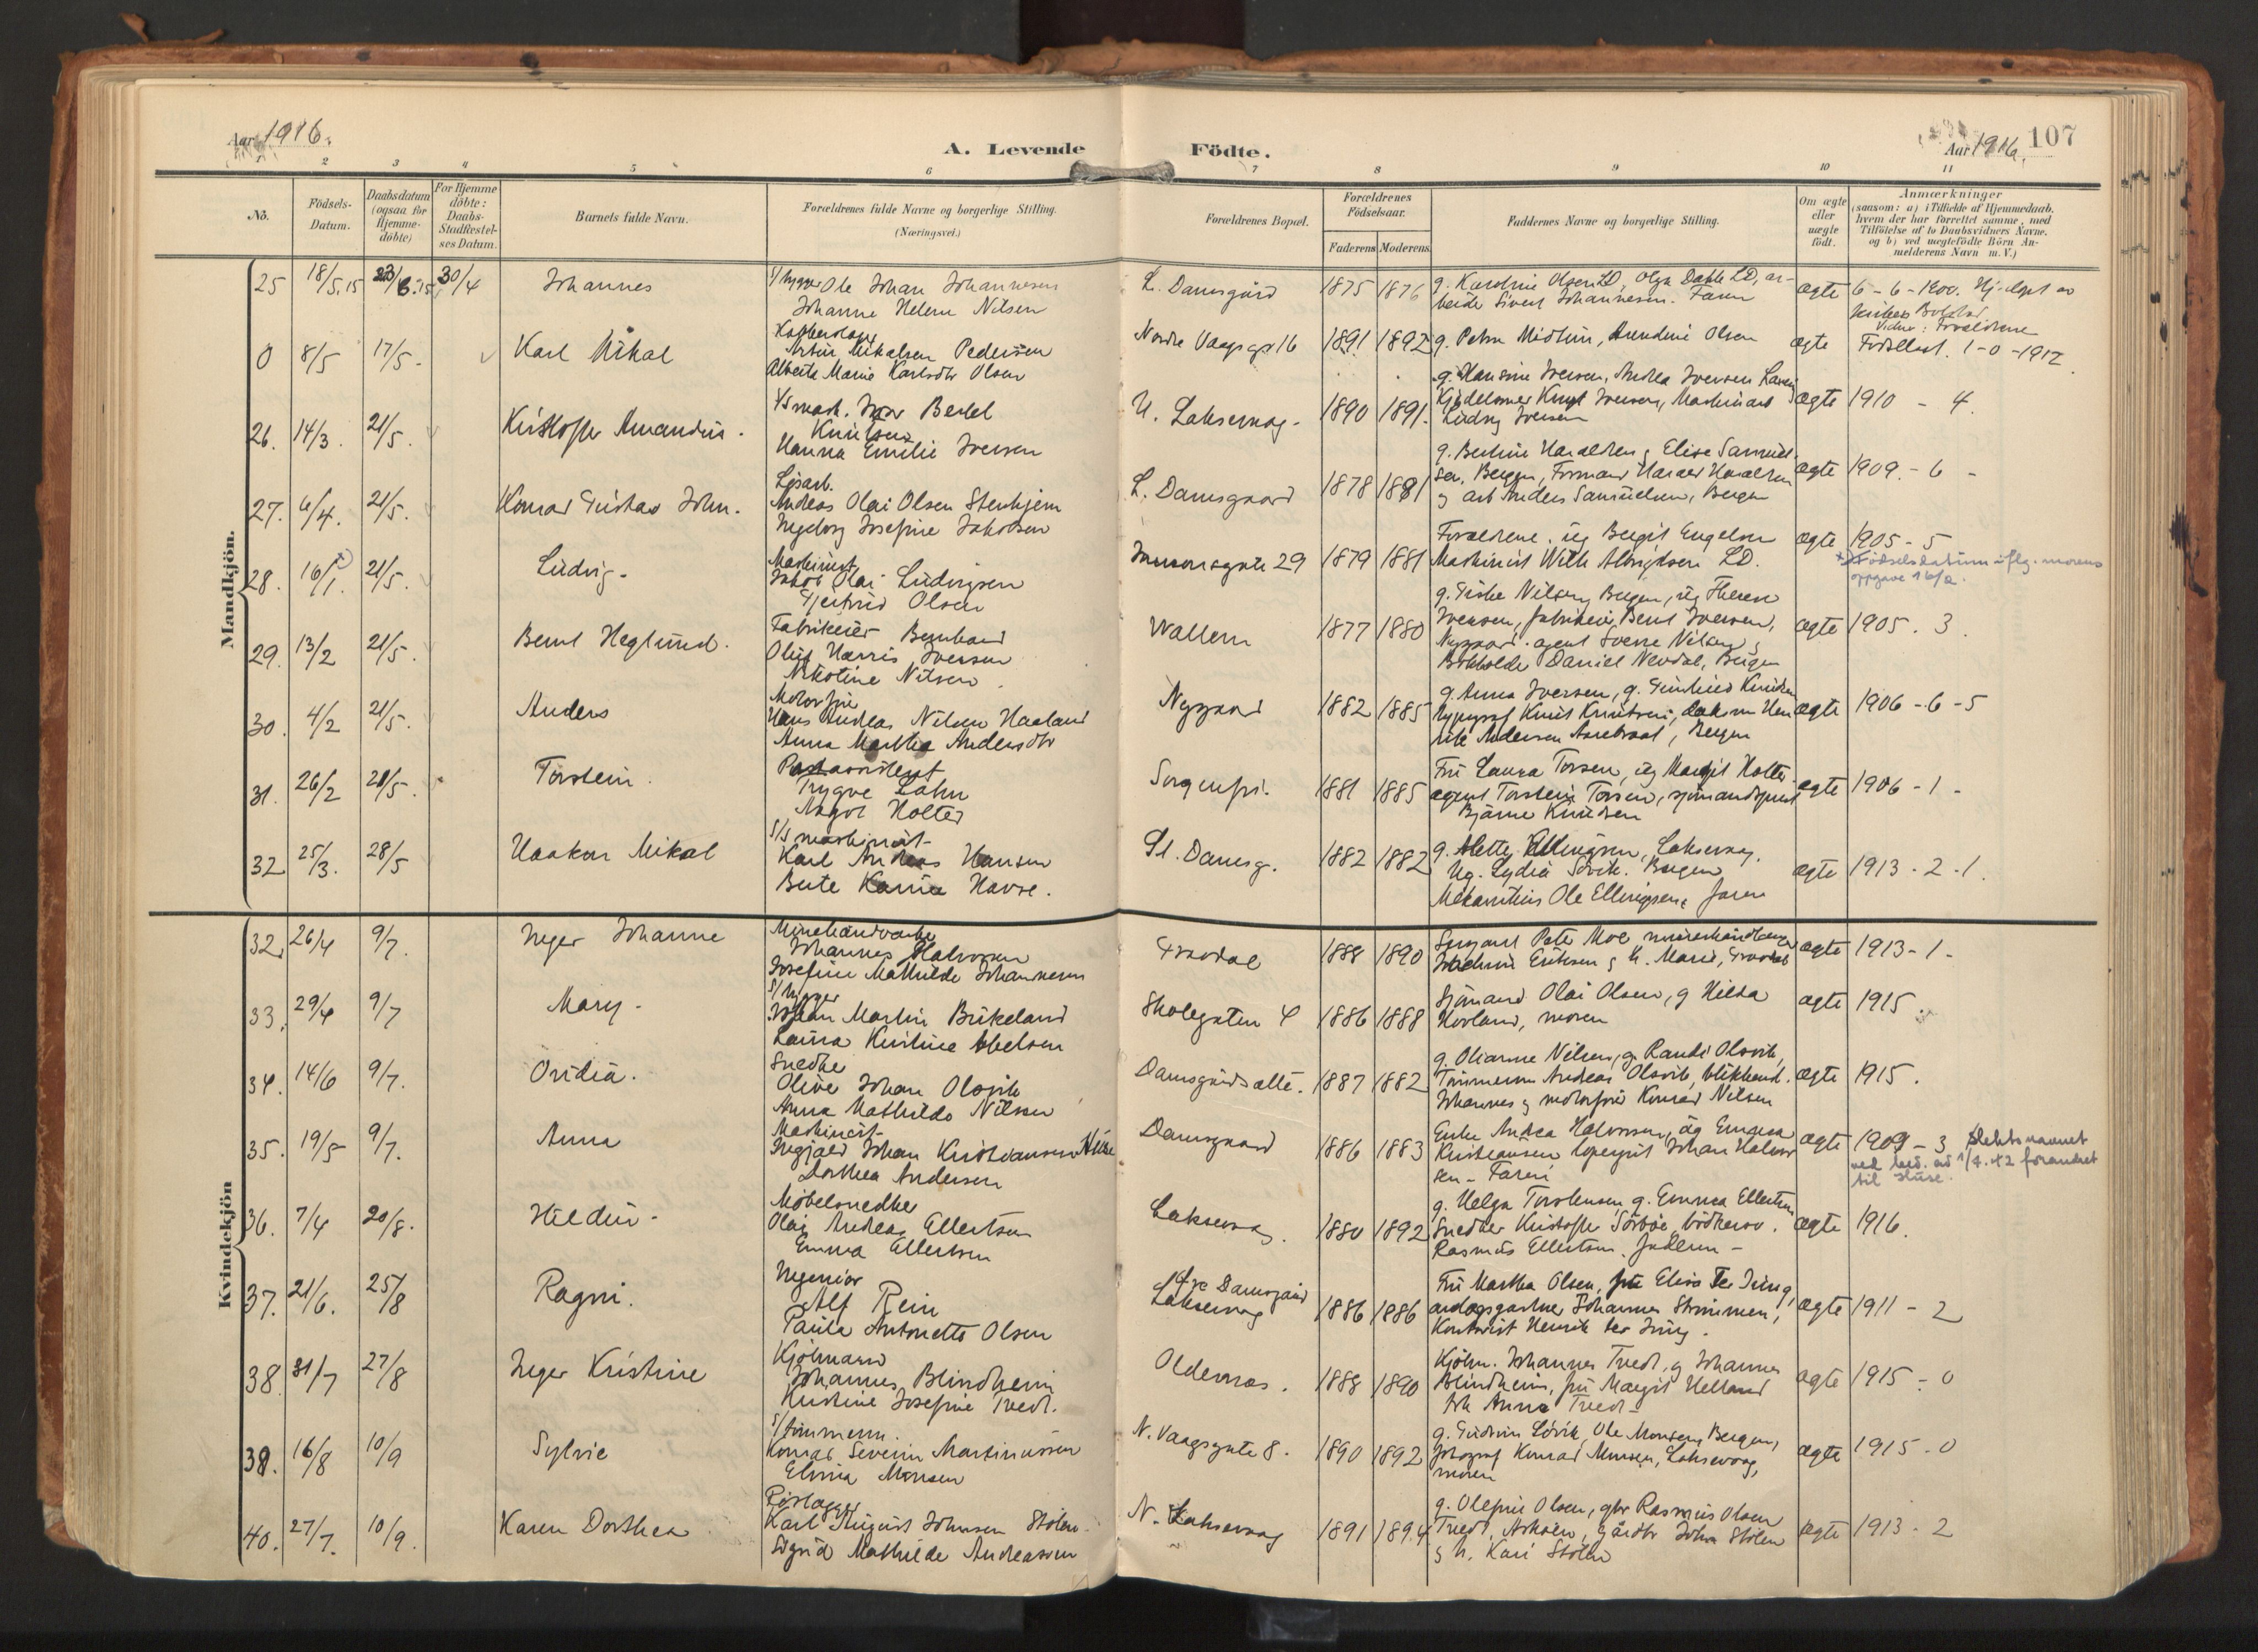 Aar 1916.
A. Levende Födte.
Aar 1916.
107
1 2 3 4 5 6 7 8 9 10 11
No.
Födsels-Datum.
Daabsdatum (ogsaa for Hjemme-döbte)
For Hjemme döbte: Daabs-Stadfæstel-ses Datum.
Barnets fulde Navn.
Forældrenes fulde Navne og borgerlige Stilling.
(Næringsvei.)
Forældrenes Bopæl.
Forældrenes Födselsaar.
Faderens Moderens
Faddernes Navne og borgerlige Stilling.
Om ægte eller uægte födt.
Anmærkninger
(saasom: a) i Tilfælde af Hjemmedaab, hvem der har forrettet samme, med Tilföielse af to Daabsvidners Navne. og b) ved uægtefödte Börn An-melderens Navn m. V.)
Mandkjön.
25 18/5.15 30/4 Johannes
Ole Johan Johannesen
Johanne Helene Nilsen
L. Damsgård 1875 1876
g. Karoline Olsen LD, Olga Dahle LD, ar-
beider Sivert Johannesen. Faren
ægte
0 8/5 17/5 Karl Mikal
Artur Mikalsen Pedersen
Alberta Marie Karlsdtr Olsen
Nordre Vaagsgt 16 1891 1892
g. Petra Midtun, Olsen
ægte 1-0-1912
26. 14/3. 21/5. Kristoffer Amandus.
Bertel
Knutsen
Hanna Emilie Iversen
U. Laksevaag. 1890 1891.
g. Hansine Iversen, Andrea Iversen
Kjedelsmed Knut Iversen, Maskinarb
Ludvig Iversen
ægte 1910 - 4.
27. 6/4. 21/5. Konrad Gustav John.
Løsarb.
Andreas Olai Olsen Stenhjem
Ingeborg Josefine Jakobsen
L. Damsgaard 1878 1881
g. Bertine Haraldsen, Elise Samuel-
sen, Bergen, Formand Harald Haraldsen
og arb Anders Samuelsen, Bergen
ægte 1909 - 6 -
28. 16/1. 21/5. Ludvig.
Maskinist
Jakob Olai Ludvigsen
Gjertrud Olsen
29 1879 1881
Forældrene. ug Bergit Engelsen
Maskinist Wilh Albrigtsen LD.
ægte 1905 - 5
x) Födselsdatum iflg. morens
oppgave 16/2.
29. 13/2 21/5. Bernt Heglund.
Fabrikeier Bernhard
Oluf Harris Iversen
Nikoline Nilsen
Wallem 1877 1880
g. Nilsen, Bergen, ug Therese
Iversen, fabrikeier Bernt Iversen,
Nygaard. agent Sverre Nilsen,
Bokholder Daniel Nevdal, Bergen
ægte 1905. 3.
30. 4/2 21/5. Anders
Hans Andreas Nilsen Haaland
Anna Martha Andersdtr
Nygaard 1882 1885
g. Anna Iversen, g. Knudsen
Typograf Knut Knutsen, Hen
rik Andersen, Bergen
ægte 1906 - 6 - 5
31. 26/2 21/5. Torstein.
Postassistent
Trygve Lahn
Magot Holter
Sorgenfri. 1881 1885
Fru Laura Torsen, ug Margit Holter.
agent Torstein Torsen, sjömandsprest
Bjarne Knudsen
ægte 1906 - 1 -
32 25/3. 28/5 Haakon Mikal
S/S maskinist
Karl Andreas Hansen
Berte Karine Havre.
St. Damsg. 1882 1882
g. Mette Ellingsen, Laksevaag.
Ug. Lydia Sövik. Bergen
Mekanikus Ole Ellingsen, faren
ægte 1913 - 2 - 1.
Kvindekjön
32. 26/4 9/7. Inger Johanne
Johannes Halvorsen
Josefine Mathilde Johannesen
1888 1890
Sergant Peter Moe murerhandlanger
Eriksen og h. Marie,
ægte 1913 - 1 -
33. 29/4 9/7 Mary.
Johan Martin Birkeland
Laura Kristine Abelsen
Skolegaten 4 1886 1888
Sjömand Olai Olsen, g Hilda
Hovland, moren
ægte 1915.
34. 14/6 9/7. Ovidia.
Snedker
Oliver Johan Olsvik
Anna Mathilde Nilsen
Damsgårds allé. 1887 1882
g. Olianne Nilsen, g Randi Olsvik,
Tömmerm Andreas Olsvik, blikkensl.
Johannes og motorförer Konrad Nilsen
ægte 1915.
35. 19/5 9/7. Anna
Maskinist
Ingjald Johan Kristiansen Stüse
Dorthea Andersen
Damsgaard 1886 1883
Enke Andrea Halvorsen, ug Emma
Kristiansen Johan Halvor
sen - Faren
ægte 1909 - 3 Slektsnavnet
ved bev. av 1/4.42 forandret
til Stüse.
36. 7/4 20/8. Hildur.
Möbelsnedker
Olai Andreas Ellertsen
Emma Ellertsen
Laksevaag. 1880 1892
g. Helga Torstensen g. Emma Ellertsen
Snedker Kristoffer Sörböe, bödkersv.
Rasmus Ellertsen. Faderen -
ægte 1916.
37. 21/6. 25/8 Ragni.
Ingeniör
Alf Rein
Paula Antonette Olsen
Damsgård
Laksevaag 1886 1886
Fru Martha Olsen, fru Elise Ter Jung,
anlægsgartner Johannes Strömmen,
Kontorist Henrik ter Jung.
ægte 1911 - 2
38. 31/7 27/8 Inger Kristine
Kjölmand
Johannes Blindheim
Kristine Josefine Tvedt.
Oldernes. 1888 1890
Kjölm. Johannes Tvedt, og Johannes
Blindheim, fru Margit Helland
frk Anna Tvedt -
ægte 1915 - 0
39. 16/8 10/9 Sylvie
S/tömmerm.
Konrad Severin Martinussen
Elvina Monsen
N. Vaagsgate 8. 1890 1892
g. Gudrun Lövik, Ole Monsen, Bergen,
fotograf Konrad Monsen, Laksevaag,
moren
ægte 1915 - 0
40. 27/7. 10/9. Karen Dorthea
Rörlægger
Karl August Johnsen Stölen
Sigrid Mathilde Andreassen
N. Laksevaag 1891 1894
g. Olefine Olsen, gbr Rasmus Olsen
Tvedt, Askøen, gårdbr John Stölen
og h. Kari Stölen
ægte 1913 - 2